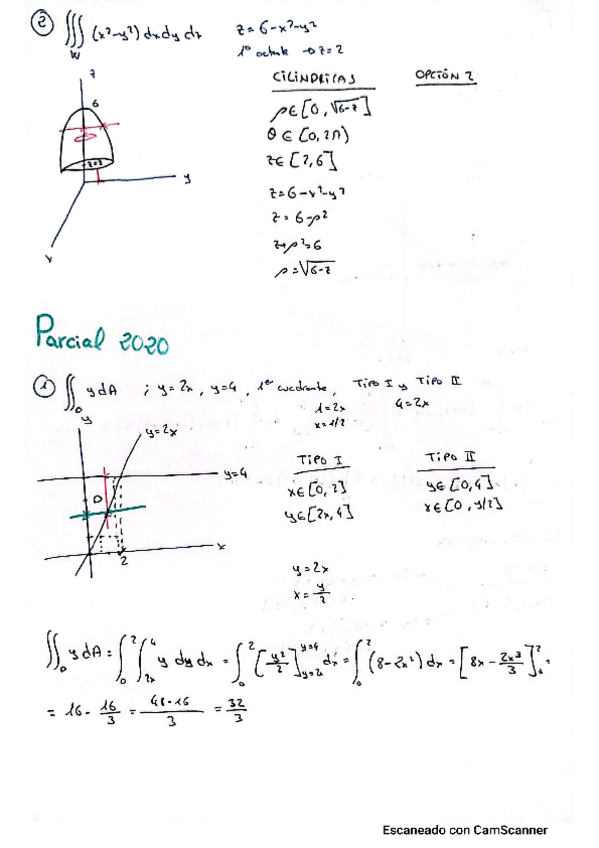 ② ∭_W (x²-y²) dxdydz    z=6-x²-y²
1º octante → z=2
CILÍNDRICAS    OPCIÓN 2
z
6
z=2
y
x
ρ∈[0,√6-z]
θ∈[0,2π)
z∈[2,6]
z=6-x²-y²
z=6-ρ²
z+ρ²=6
ρ=√6-z
Parcial 2020
① ∬_D y dA ; y=2x, y=4, 1er cuadrante, Tipo I y Tipo II
1=2x    4=2x
x=1/2
y
y=2x
y=4
D
x
2
TIPO I    TIPO II
x∈[0,2]    y∈[0,4]
y∈[2x,4]    x∈[0,y/2]
y=2x
x=y/2
∬_D y dA = ∫_0^2 ∫_2x^4 y dy dx = ∫_0^2 [y²/2]_{y=2x}^{y=4} dx = ∫_0^2 (8-2x²) dx = [8x - 2x³/3]_0^2 =
= 16 - 16/3 = 48-16/3 = 32/3
Escaneado con CamScanner